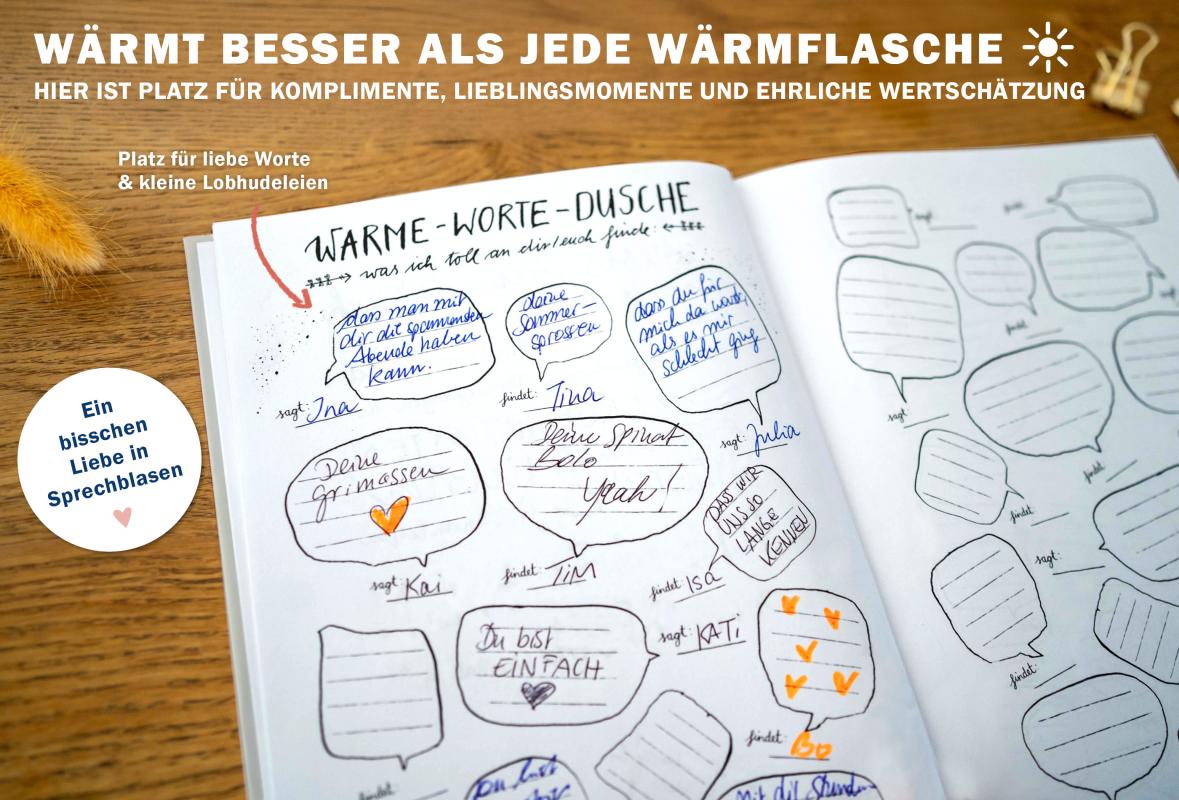 WÄRMT BESSER ALS JEDE WÄRMFLASCHE
HIER IST PLATZ FÜR KOMPLIMENTE, LIEBLINGSMOMENTE UND EHRLICHE WERTSCHÄTZUNG
Platz für liebe Worte
& kleine Lobhudeleien
WARME-WORTE-DUSCHE
was ich toll an dir/euch finde:
dass man mit
dir die spannensten
Abende haben
kann.
sagt: Ina
deine
Sommer-
sprossen
findet: Tina
dass du für
mich da warst,
als es mir
schlecht ging
sagt: Julia
Ein
bisschen
Liebe in
Sprechblasen
Deine
grimassen
sagt: Kai
Deine Spinat
Bolo
Yeah!
findet: TiM
DASS WIR
UNS SO
LANGE
KENNEN
findet: Isa
Du bist
EINFACH
sagt: KATi
findet: Bo
findet:
Du bist
mit dir Stunden-
sagt:
findet:
findet:
sagt:
findet:
findet:
sagt:
findet: